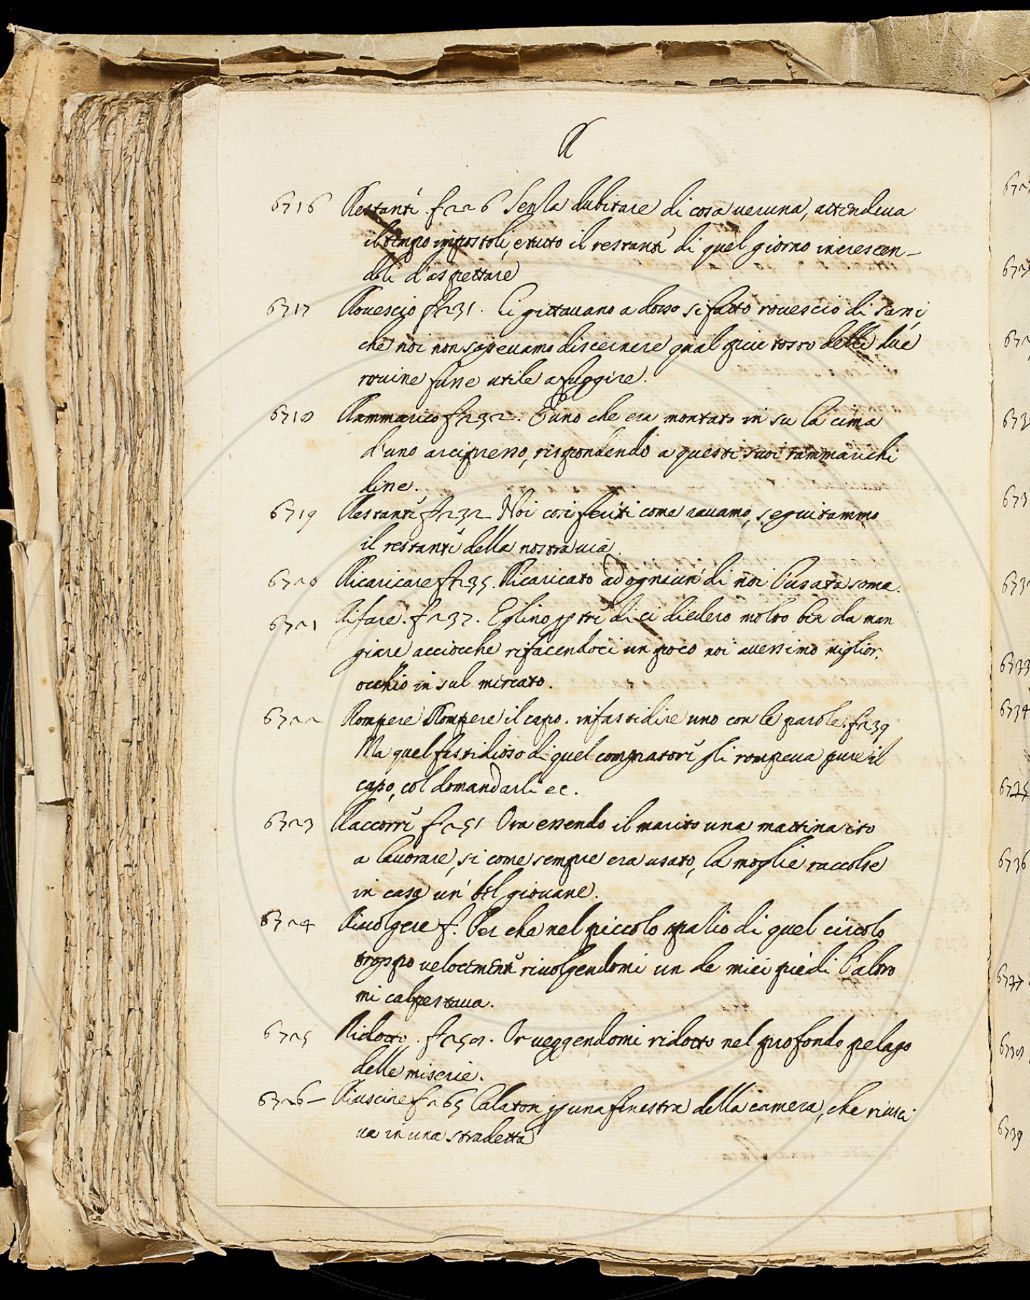 R
6716 Restante f 226 Senza dubitare di cosa veruna, attendeva
il tempo impostoli, e tutto il restante di quel giorno increscen-
doli d'aspettare
6717 Rovescio f 231. Ci gittavano a dosso si fatto rovescio di sassi
che noi non sapevamo discernere qual piu tosto delle due
rovine fusse utile a fuggire.
6718 Rammarico f 232. E uno che era montato in su la cima
d'uno arcipresso, rispondendo a questi suoi rammarichi
disse.
6719 Restante f 232 Noi cosi feriti come eravamo, seguitammo
il restante della nostra via.
6720 Ricaricare f 235. Ricaricato ad ogniun di noi l'usata soma.
6721 Rifare. f 237. Eglino di ci diedero molto ben da man
giare acciocche rifacendoci un poco noi avessimo miglior
occhio in sul mercato.
6722 Rompere Rompere il capo. infastidire uno con le parole. f 239
Ma quel fastidioso di quel compratore gli rompeva pure il
capo, col domandarli ec.
6723 Raccorre f 251 Ora essendo il marito una mattina ito
a lavorare, si come sempre era usato, la moglie raccolse
in casa un bel giovane.
6724 Rivolgere f. Per che nel piccolo spatio di quel circolo
troppo velocemente rivolgendomi un de miei piedi l'altro
mi calpestava.
6725 Ridotto. f 258. Or veggendomi ridotto nel profondo pelago
delle miserie.
6726 – Riuscire f 265 Calaton p una finestra della camera, che riusci
va in una stradetta
6733
6734
6735
6736
6737
6738
6739